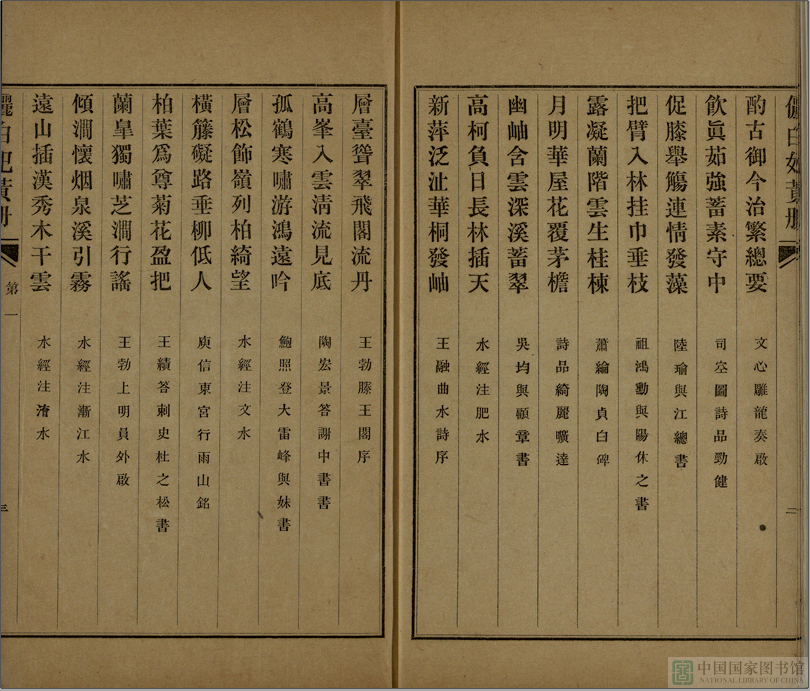 儷白妃黃冊
二
酌古御今治繁總要 文心雕龍奏啟
飲眞茹強蓄素守中 司空圖詩品勁健
促膝舉觴連情發藻 陸瑜與江總書
把臂入林挂巾垂枝 祖鴻勳與陽休之書
露凝蘭階雲生桂棟 蕭綸陶貞白碑
月明華屋花覆茅檐 詩品綺麗曠達
幽岫含雲深溪蓄翠 吳均與顧章書
高柯負日長林插天 水經注肥水
新萍泛沚華桐發岫 王融曲水詩序
層臺聳翠飛閣流丹 王勃滕王閣序
高峯入雲淸流見底 陶宏景答謝中書書
孤鶴寒嘯游鴻遠吟 鮑照登大雷峰與妹書
層松飾嶺列柏綺望 水經注文水
橫籐礙路垂柳低人 庾信東宮行雨山銘
柏葉爲尊菊花盈把 王績答刺史杜之松書
蘭皐獨嘯芝澗行謠 王勃上明員外啟
傾澗懷烟泉溪引霧 水經注漸江水
遠山插漢秀木干雲 水經注濟水
儷白妃黃冊
第一
三
中国国家图书馆
NATIONAL LIBRARY OF CHINA